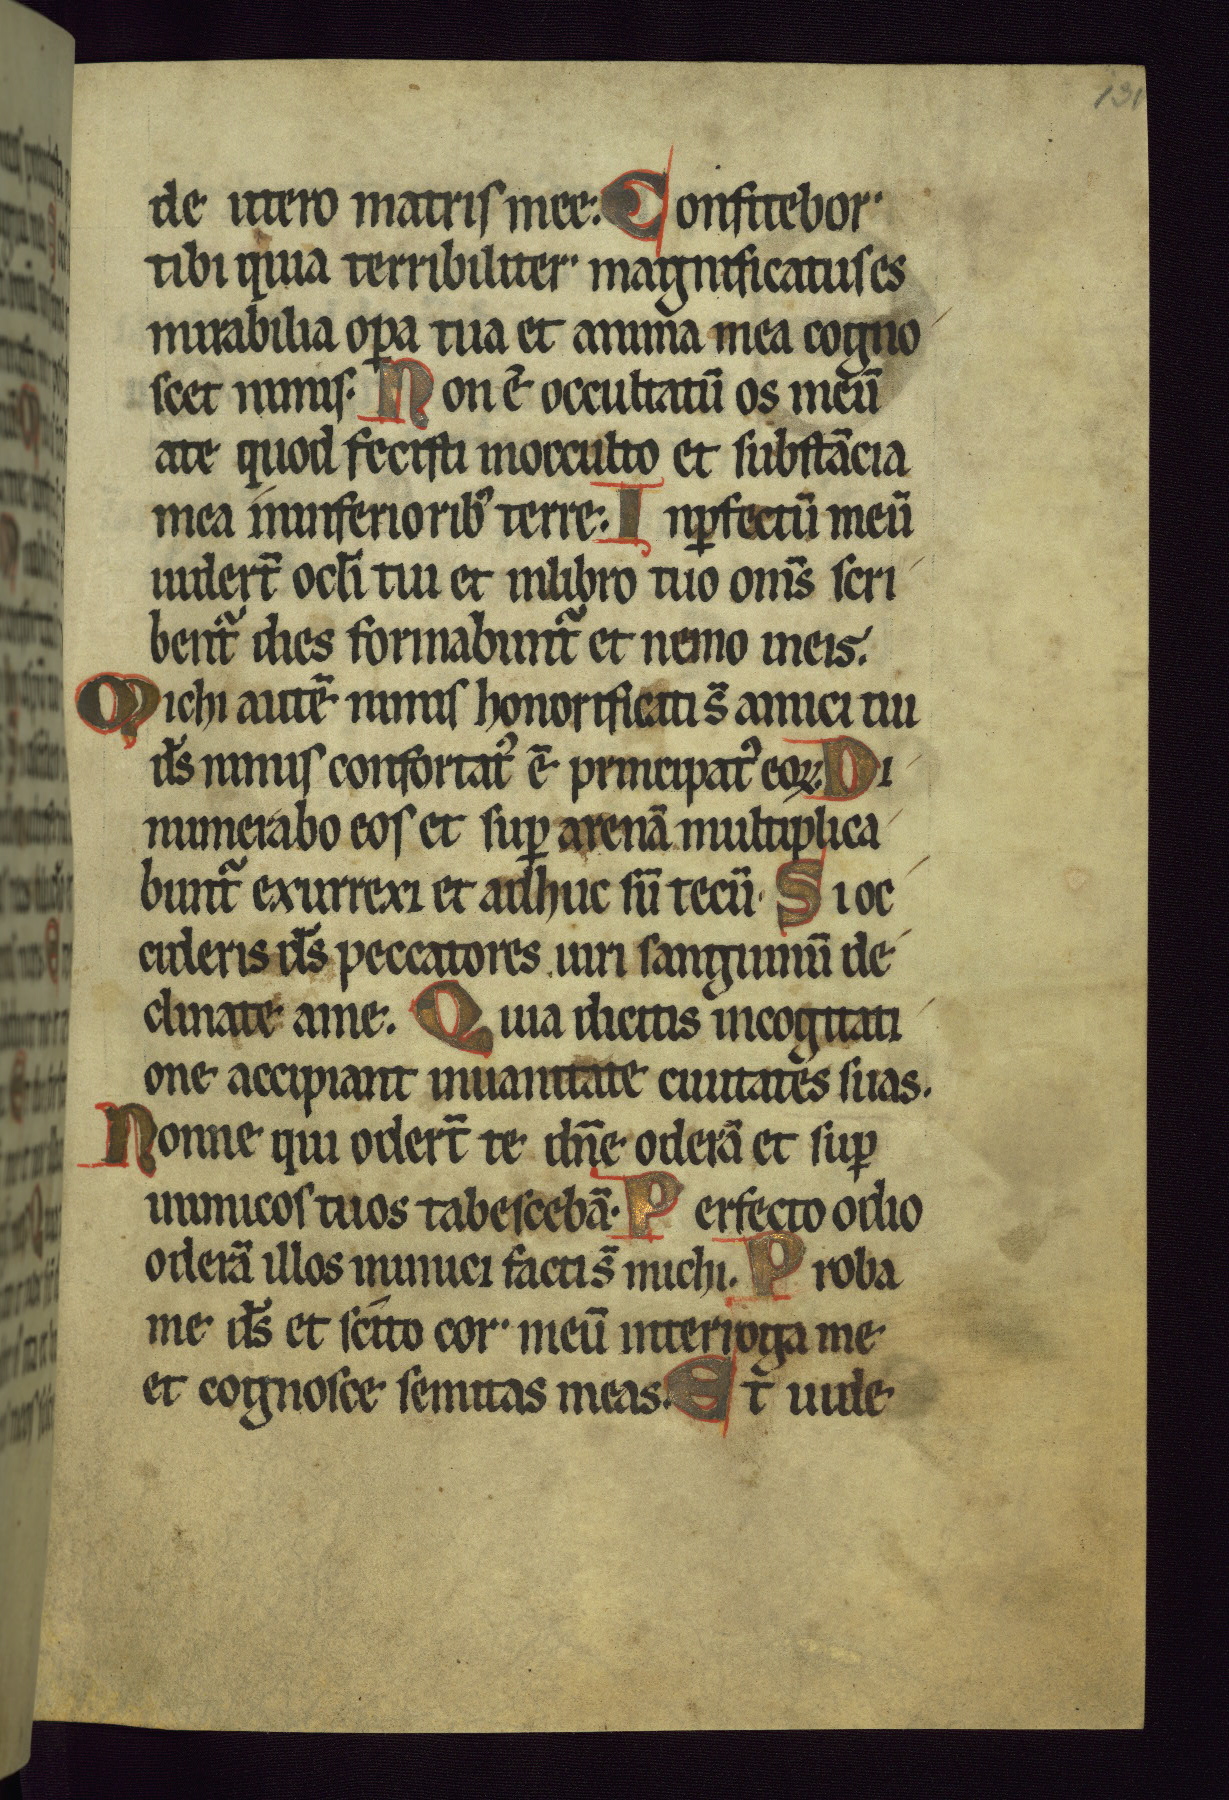 131
de utero matris mee. Confitebor
tibi quia terribiliter magnificatus es
mirabilia opa tua et anima mea cogno
scet nimis. Non ē occultatū os meū
ate quod fecisti inocculto et substācia
mea ininferiorib' terre. Inꝑfectū meū
uidert̄ ocli tui et inlibro tuo om̄s scri
bent̃ dies formabunt̃ et nemo ineis.
Michi autē nimis honorificati s̄ amici tui
ds̄ nimis confortat' ē principat' eoꝝ. Di
numerabo eos et suꝑ arenā multiplica
bunt̃ exurrexi et adhuc sū tecū. Si oc
cideris ds̄ peccatores uiri sanguinū de
clinate ame. Quia dicitis incogitati
one accipiant inuanitate ciuitates suas.
Nonne qui odert̄ te dn̄e oderā et suꝑ
inimicos tuos tabescebā. Perfecto odio
oderā illos inimici facti s̄ michi. Proba
me ds̄ et scito cor meū interroga me
et cognosce semitas meas. Et uide